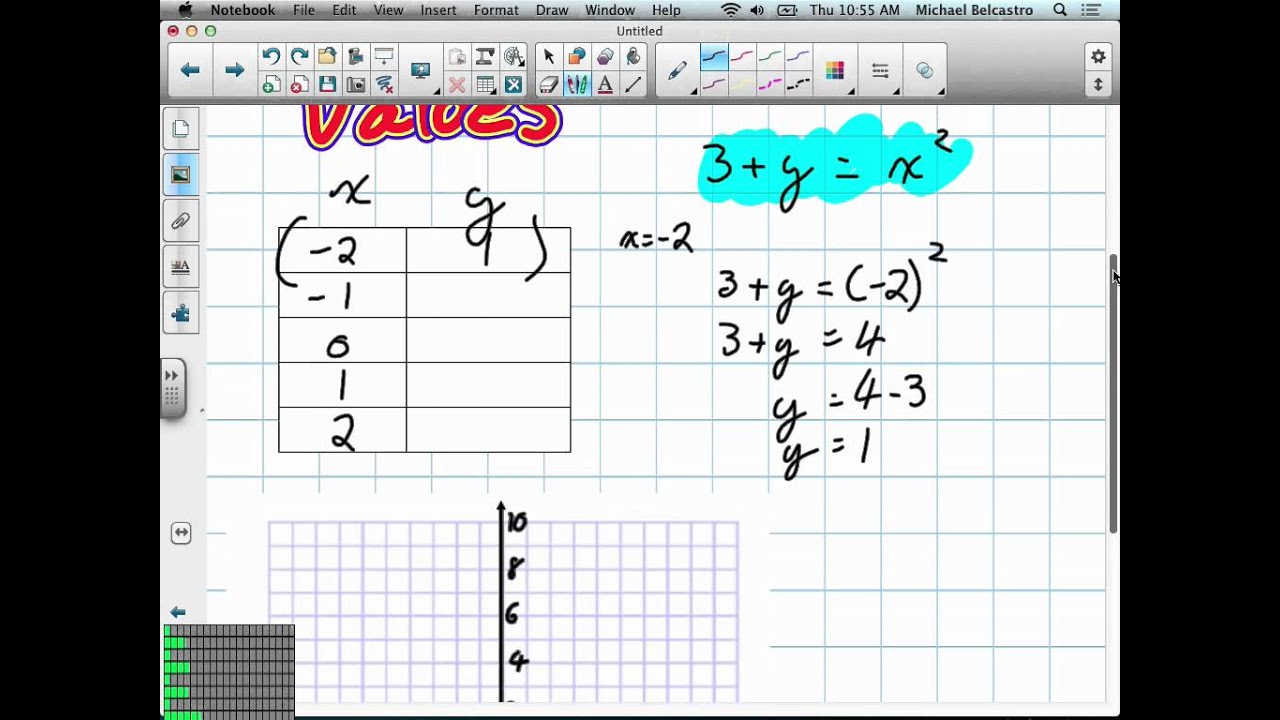 Notebook File Edit View Insert Format Draw Window Help Thu 10:55 AM Michael Belcastro
Untitled
A
Values
3 + y = x²
x y
( -2 1 )
-1
0
1
2
x = -2
3 + y = (-2)²
3 + y = 4
y = 4 - 3
y = 1
10
8
6
4